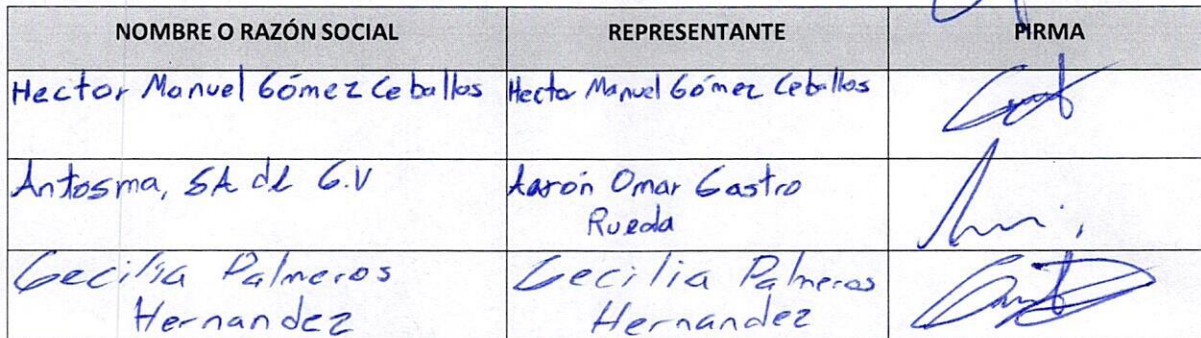 NOMBRE O RAZÓN SOCIAL REPRESENTANTE FIRMA
Hector Manuel Gómez Ceballos Hector Manuel Gómez Ceballos
Antosma, SA de C.V Aarón Omar Castro
Rueda
Cecilia Palmeros Cecilia Palmeros
Hernandez Hernandez